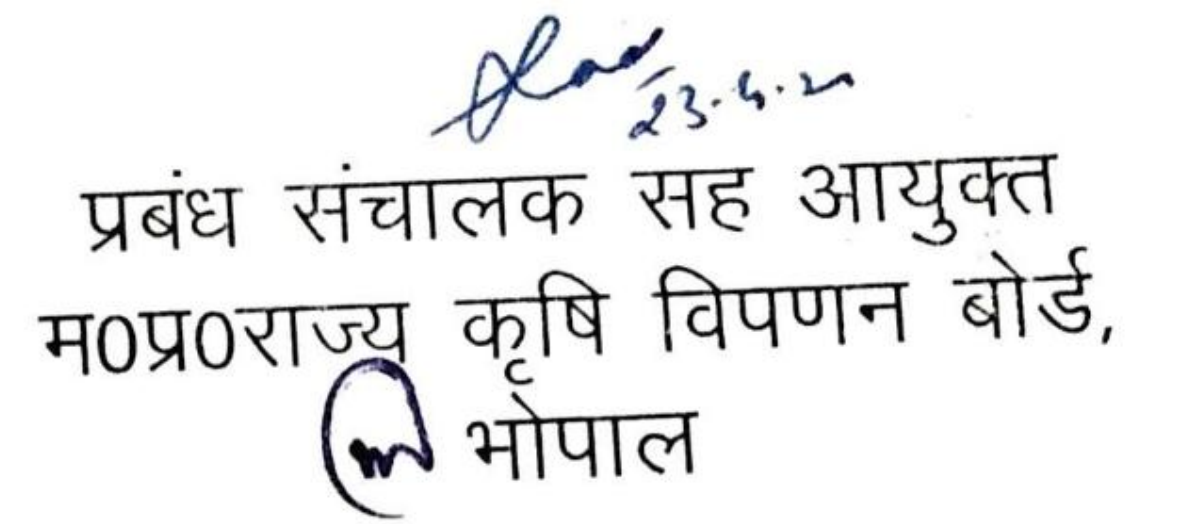 23.4.20
प्रबंध संचालक सह आयुक्त
म0प्र0राज्य कृषि विपणन बोर्ड,
भोपाल